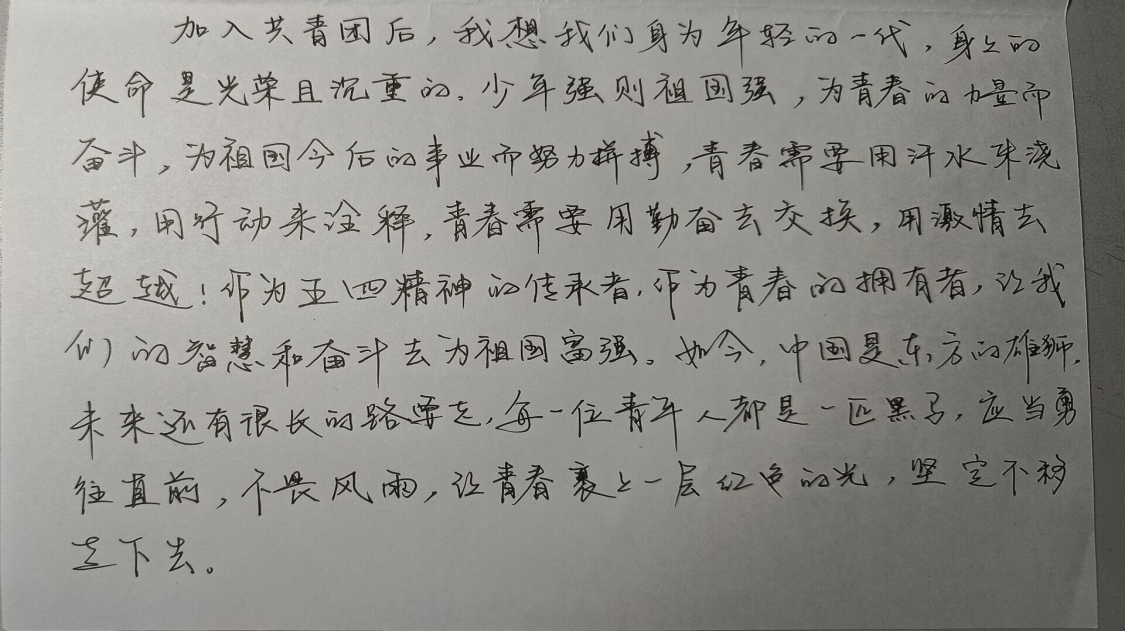 加入共青团后，我想我们身为年轻的一代，身上的
使命是光荣且沉重的．少年强则祖国强，为青春的力量而
奋斗，为祖国今后的事业而努力拼搏，青春需要用汗水来浇
灌，用行动来诠释，青春需要用勤奋去交换，用激情去
超越！作为五四精神的传承者．作为青春的拥有者，让我
们的智慧和奋斗去为祖国富强。如今，中国是东方的雄狮．
未来还有很长的路要走，每一位青年人都是一匹黑马，应当勇
往直前，不畏风雨，让青春裹上一层红色的光，坚定不移
走下去。